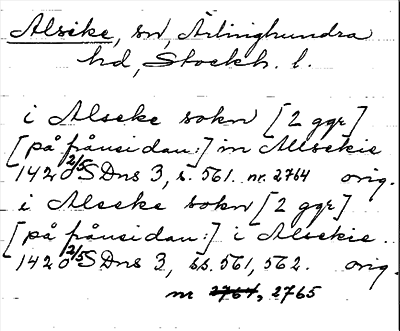 Alsike, sn, Ärlinghundra
hd, Stockh. l.
i Alseke sokn [2 ggr]
[på frånsidan:] in Allsekie
1420 2/5 SDns 3, s. 561. nr. 2764 orig.
i Alseke sokn [2 ggr]
[på frånsidan:] i Alsekie.
1420 2/5 SDns 3, ss. 561, 562. orig.
nr 2764, 2765